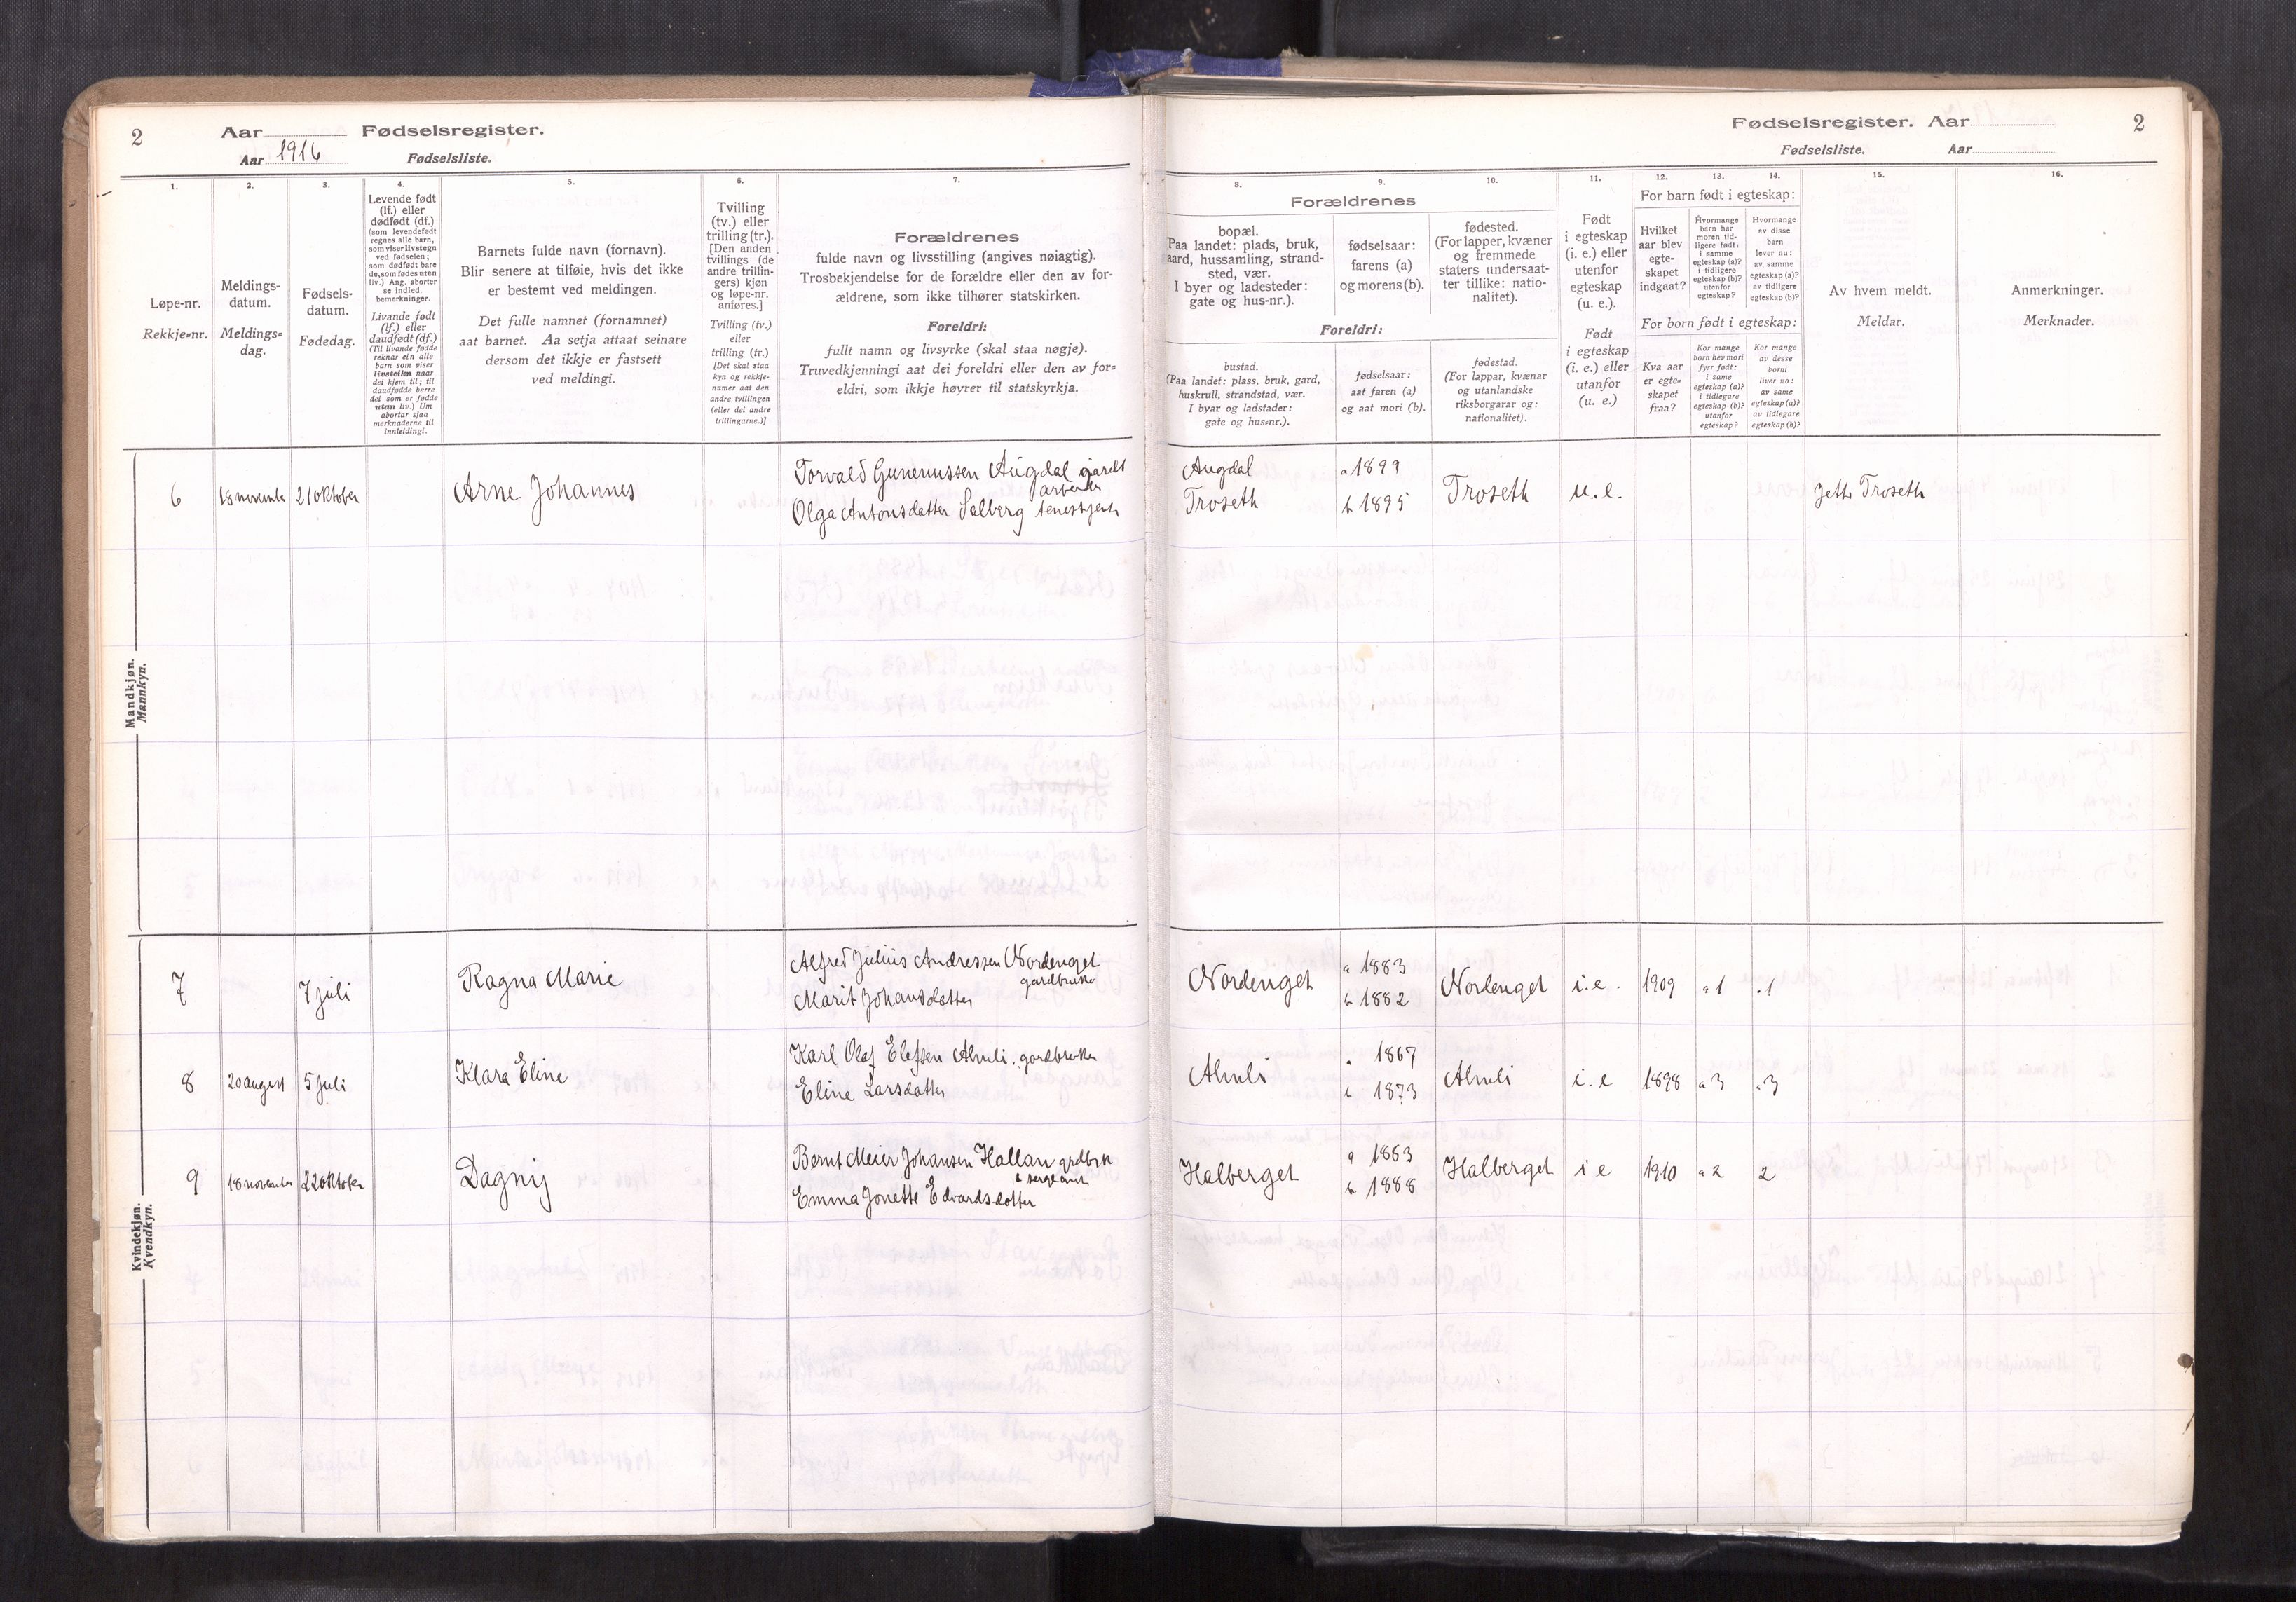 2
Aar
Fødselsregister.
Aar 1916
Fødselsliste.
1.
Løpe-nr.
Rekkje=nr.
2.
Meldings-
datum.
Meldings=
dag.
3.
Fødsels-
datum.
Fødedag.
4.
Levende født
(lf.) eller
dødfødt (df.)
(som levendefødt
regnes alle barn,
som viser livstegn
ved fødselen;
som dødfødt bare
de, som fødes uten
liv.) Ang. aborter
se indled.
bemerkninger.
Livande født
(lf.) eller
daudfødt (df.)
(Til livande fødde
reknar ein alle
barn som viser
livsteikn naar
dei kjem til; til
daudfødde berre
dei som er fødde
utan liv.) Um
abortar sjaa
merknaderne til
innleidingi.
5.
Barnets fulde navn (fornavn).
Blir senere at tilføie, hvis det ikke
er bestemt ved meldingen.
Det fulle namnet (fornamnet)
aat barnet. Aa setja attaat seinare
dersom det ikkje er fastsett
ved meldingi.
6.
Tvilling
(tv.) eller
trilling (tr.).
[Den anden
tvillings (de
andre trillin-
gers) kjøn
og løpe-nr.
anføres.]
Tvilling (tv.)
eller
trilling (tr.)
[Det skal staa
kyn og rekkje-
numer aat den
andre tvillingen
(eller dei andre
trillingarne.)]
7.
Forældrenes
fulde navn og livsstilling (angives nøiagtig).
Trosbekjendelse for de forældre eller den av for-
ældrene, som ikke tilhører statskirken.
Foreldri:
fullt namn og livsyrke (skal staa nøgje).
Truvedkjenningi aat dei foreldri eller den av for=
eldri, som ikkje høyrer til statskyrkja.
Fødselsregister. Aar
2
Fødselsliste.
Aar
Forældrenes
8.
bopæl.
Paa landet: plads, bruk,
gaard, hussamling, strand-
sted, vær.
I byer og ladesteder:
gate og hus-nr.).
9.
fødselsaar:
farens (a)
og morens (b).
10.
fødested.
(For lapper, kvæner
og fremmede
staters undersaat-
ter tillike: natio-
nalitet).
Foreldri:
bustad.
(Paa landet: plass, bruk, gard,
huskrull, strandstad, vær.
I byar og ladstader:
gate og hus=nr.).
fødselsaar:
aat faren (a)
og aat mori (b).
fødestad.
(For lappar, kvænar
og utanlandske
riksborgarar og:
nationalitet).
11.
Født
i egteskap
(i. e.) eller
utenfor
egteskap
(u. e.).
Født
i egteskap
(i. e.) eller
utanfor
egteskap
(u. e.)
12.
13.
14.
For barn født i egteskap:
Hvilket
aar blev
egte-
skapet
indgaat?
Hvormange
barn har
moren tid-
ligere født:
i samme
egteskap (a)?
i tidligere
egteskap (b)?
utenfor
egteskap?
Hvormange
av disse
barn
lever nu:
av samme
egteskap (a)?
av tidligere
egteskap (b)?
For born født i egteskap:
Kva aar
er egte=
skapet
fraa?
Kor mange
born hev mori
fyrr født:
i same
egteskap (a)?
i tidlegare
egteskap (b)?
utanfor
egteskap?
Kor mange
av desse
borni
liver no:
av same
egteskap (a)?
av tidlegare
egteskap (b)?
15.
Av hvem meldt.
Meldar.
16.
Anmerkninger.
Merknader.
Mandkjøn.
Mannkyn.
6 18 november 21 oktober Arne Johannes
Torvald Gunerussen Augdal gards
arbeider
Olga Antonsdatter Salberg tenestjent
Augdal
Troseth
a 1899
b 1895
Troseth u.e. Troseth
Kvindekjøn.
Kvendkyn.
7 7 juli Ragna Marie
Alfred Julius Andressen Nordenget
gardbruker
Marit Johansdatter
Nordenget
a 1883
b 1882
Nordenget i.e. 1909 a 1 . 1
8 20 august 5 juli Klara Eline
Karl Olaf Elefsen Ahnli. gardbruker
Eline Larsdatter
Ahnli
a 1867
b 1873
Ahnli i.e 1898 a 3 a 3
9 18 november 22 oktober Dagny
Bernt Meier Johansen Hallan grdbrk
& sergeant
Emma Jonette Edvardsdatter
Halberget
a 1863
b 1888
Halberget i e 1910 a 2 2